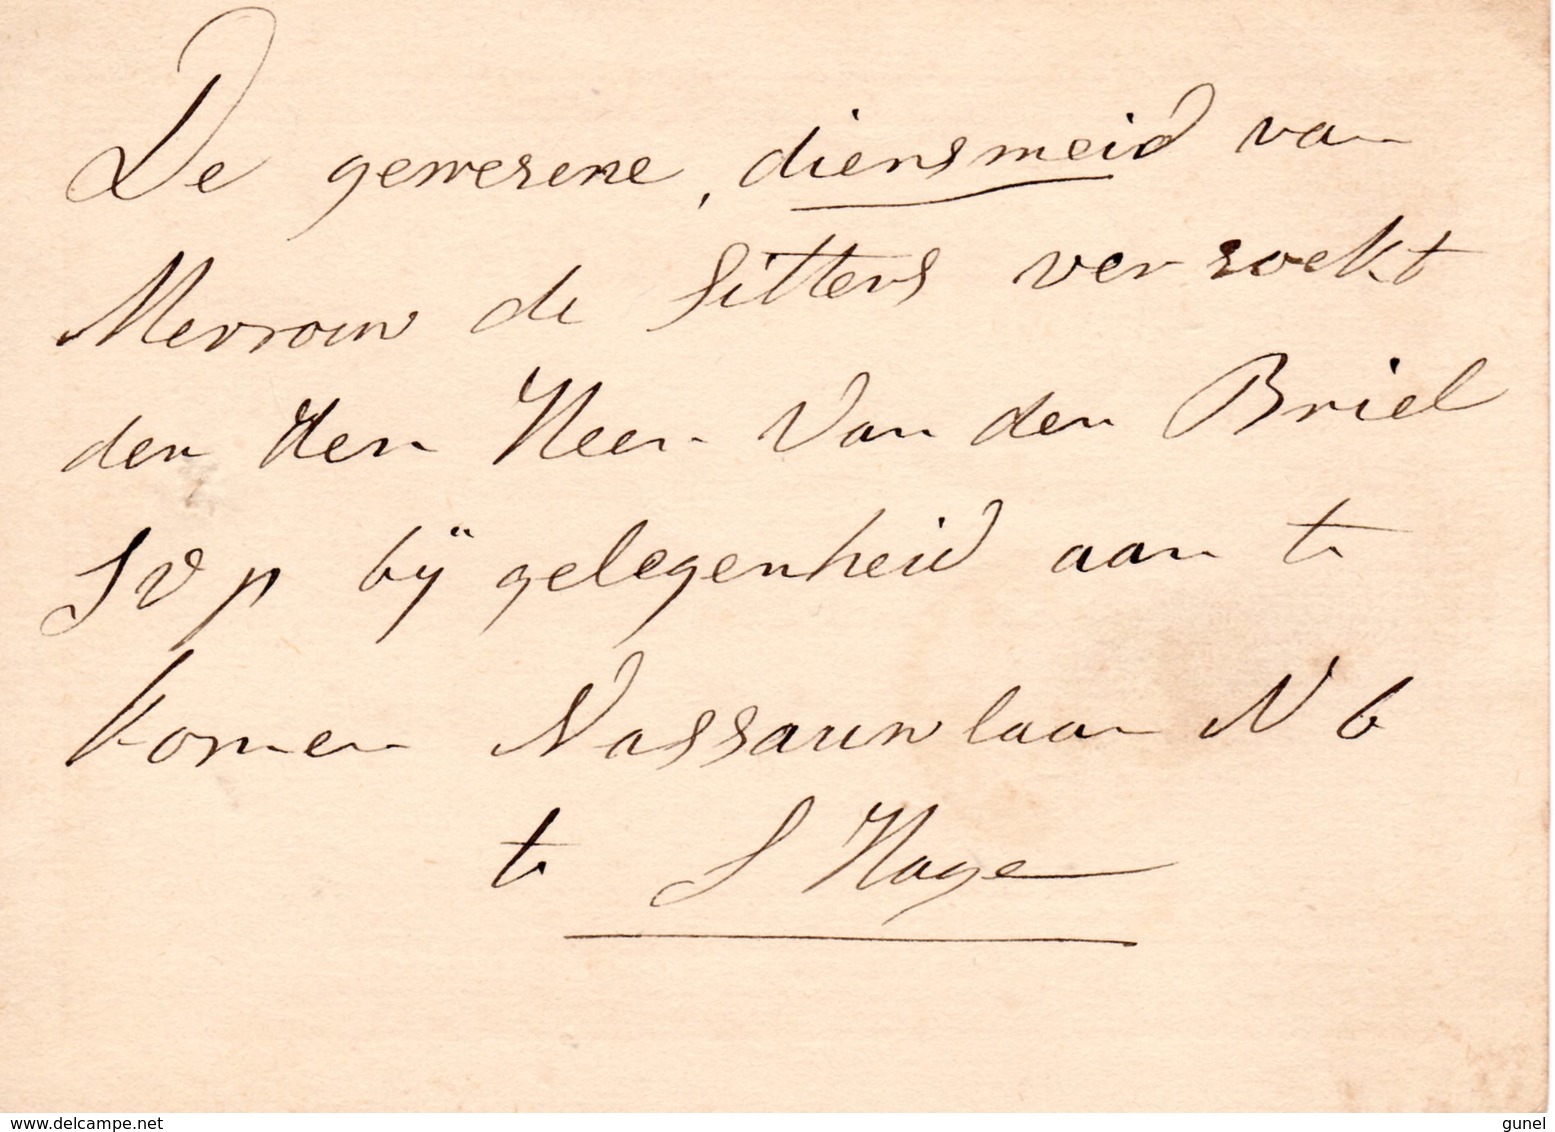 De gewesene, diensmeid van
Mevrouw de Sitters ver zoekt
den Hen Heer Van den Briel
S v p bij gelegenheid aan te
komen Nassauwlaan N 6
te S Hage
www.delcampe.net
gunel